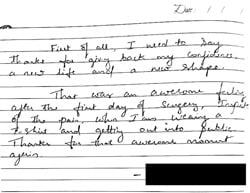 Date: / /
First of all, I need to say
Thanks for giving back my confidence,
a new life and a new shape.
That was an awesome feeling
after the first day of surgery, Inspite
of the pain, when I am wearing a
T-shirt and getting out into public.
Thanks for that awesome moment
again.